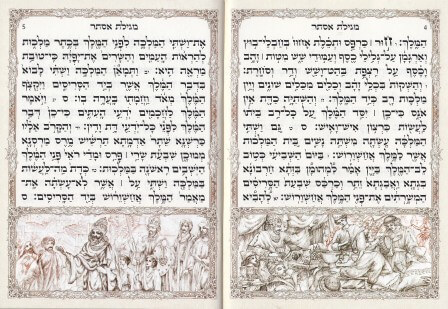 4 מגילת אסתר
הַמֶּלֶךְ: חוּר | כַּרְפַּס וּתְכֵלֶת אָחוּז בְּחַבְלֵי־בוּץ
וְאַרְגָּמָן עַל־גְּלִילֵי כֶסֶף וְעַמּוּדֵי שֵׁשׁ מִטּוֹת | זָהָב
וָכֶסֶף עַל רִצְפַת בַּהַט־וָשֵׁשׁ וְדַר וְסֹחָרֶת:
וְהַשְׁקוֹת בִּכְלֵי זָהָב וְכֵלִים מִכֵּלִים שׁוֹנִים וְיֵין
מַלְכוּת רָב כְּיַד הַמֶּלֶךְ: וְהַשְּׁתִיָּה כַדָּת אֵין
אֹנֵס כִּי־כֵן | יִסַּד הַמֶּלֶךְ עַל כָּל־רַב בֵּיתוֹ
לַעֲשׂוֹת כִּרְצוֹן אִישׁ־וָאִישׁ: ס גַּם וַשְׁתִּי
הַמַּלְכָּה עָשְׂתָה מִשְׁתֵּה נָשִׁים בֵּית הַמַּלְכוּת
אֲשֶׁר לַמֶּלֶךְ אֲחַשְׁוֵרוֹשׁ: בַּיּוֹם הַשְּׁבִיעִי כְּטוֹב
לֵב־הַמֶּלֶךְ בַּיָּיִן אָמַר לִמְהוּמָן בִּזְּתָא חַרְבוֹנָא
בִּגְתָא וַאֲבַגְתָא זֵתַר וְכַרְכַּס שִׁבְעַת הַסָּרִיסִים
הַמְשָׁרְתִים אֶת־פְּנֵי הַמֶּלֶךְ אֲחַשְׁוֵרוֹשׁ: לְהָבִיא
מגילת אסתר 5
אֶת־וַשְׁתִּי הַמַּלְכָּה לִפְנֵי הַמֶּלֶךְ בְּכֶתֶר מַלְכוּת
לְהַרְאוֹת הָעַמִּים וְהַשָּׂרִים אֶת־יָפְיָהּ כִּי־טוֹבַת
מַרְאֶה הִיא: וַתְּמָאֵן הַמַּלְכָּה וַשְׁתִּי לָבוֹא
בִּדְבַר הַמֶּלֶךְ אֲשֶׁר בְּיַד הַסָּרִיסִים וַיִּקְצֹף
הַמֶּלֶךְ מְאֹד וַחֲמָתוֹ בָּעֲרָה בוֹ: ס וַיֹּאמֶר
הַמֶּלֶךְ לַחֲכָמִים יֹדְעֵי הָעִתִּים כִּי־כֵן דְּבַר
הַמֶּלֶךְ לִפְנֵי כָּל־יֹדְעֵי דָּת וָדִין: וְהַקָּרֹב אֵלָיו
כַּרְשְׁנָא שֵׁתָר אַדְמָתָא תַרְשִׁישׁ מֶרֶס מַרְסְנָא
מְמוּכָן שִׁבְעַת שָׂרֵי | פָּרַס וּמָדַי רֹאֵי פְּנֵי הַמֶּלֶךְ
הַיֹּשְׁבִים רִאשֹׁנָה בַּמַּלְכוּת: כְּדָת מַה־לַּעֲשׂוֹת
בַּמַּלְכָּה וַשְׁתִּי עַל | אֲשֶׁר לֹא־עָשְׂתָה אֶת־
מַאֲמַר הַמֶּלֶךְ אֲחַשְׁוֵרוֹשׁ בְּיַד הַסָּרִיסִים: ס